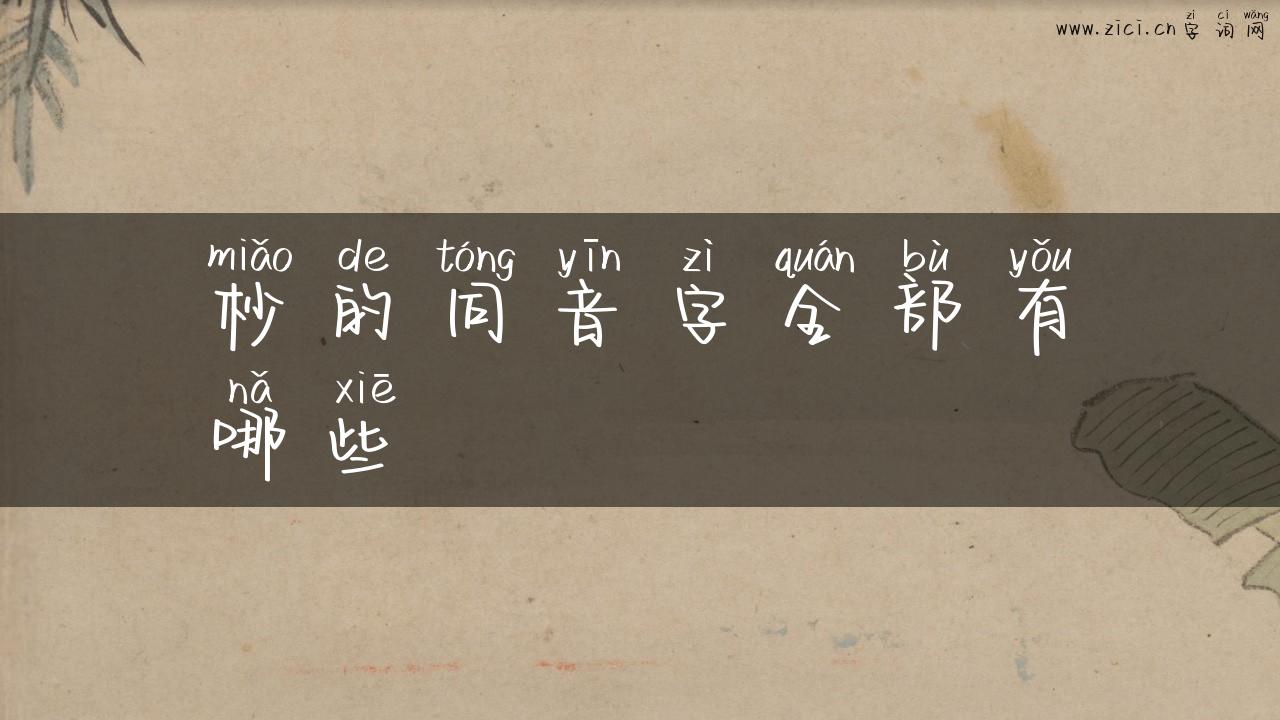 zì cí wǎng
www.zici.cn 字 词 网
miǎo de tóng yīn zì quán bù yǒu
杪 的 同 音 字 全 部 有
nǎ xiē
哪 些